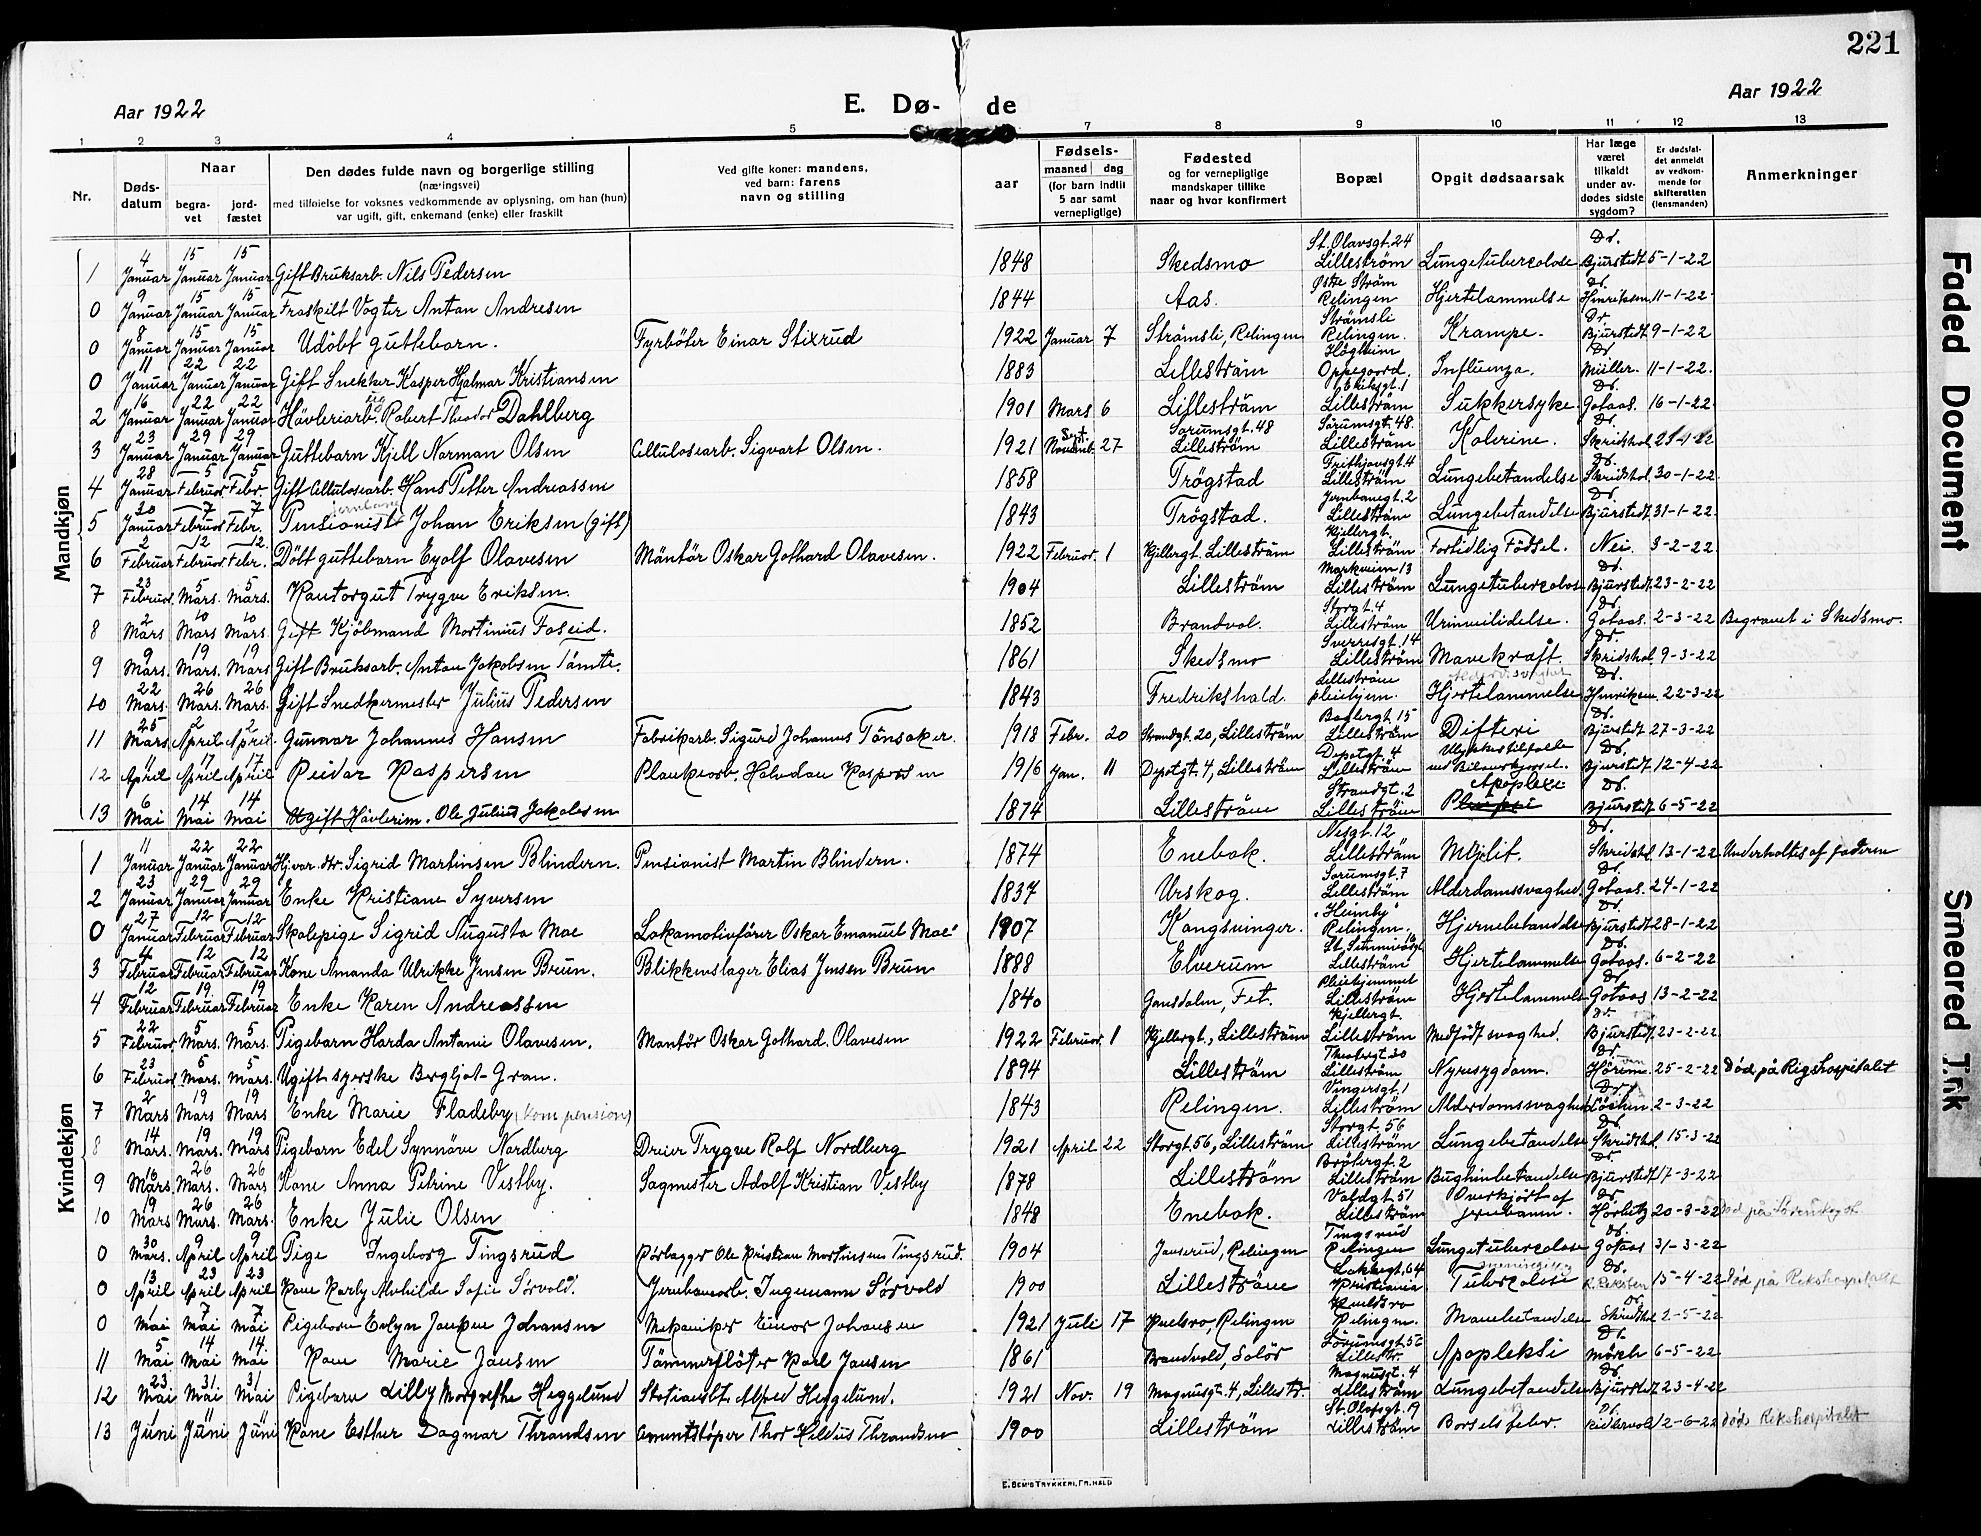 221
Aar 1922
E. Dø- de
Aar 1922
1 2 3 4 5 7 8 9 10 11 12 13
Nr.
Døds-datum
Naar
begra-vet
jord-fæstet
Den dødes fulde navn og borgerlige stilling
(næringsvei)
med tilføielse for voksnes vedkommende av oplysning, om han (hun)
var ugift, gift, enkemand (enke) eller fraskilt
Ved gifte koner: mandens,
ved barn: farens
navn og stilling
aar
Fødsels-
maaned dag
(for barn indtil
5 aar samt
vernepligtige)
Fødested
og for vernepligtige
mandskaper tillike
naar og hvor konfirmert
Bopæl
Opgit dødsaarsak
Har læge
været
tilkaldt
under av-
dødes sidste
sygdom?
Er dødsfal-
det anmeldt
av vedkom-
mende for
skifteretten
(lensmanden)
Anmerkninger
Mandkjøn
1 4 Januar 15 Januar 15 Januar Gift Bruksarb. Nils Pedersen 1848 Skedsmo St. Olavsgt. 24 Lilleström Lungetuberculose Dr. Bjurstedt 5-1-22
0 9 Januar 15 Januar 15 Januar Fraskilt Vogter Anton Andresen 1844 Aas. Østre Ström Relingen Hjertelammelse Dr. Hinriksen 11-1-22
0 8 Januar 15 Januar 15 Januar Udöbt guttebarn. Fyrböter Einar Stixrud 1922 Januar 7 Strömsli, Relingen Strömsli Relingen. Krampe. Dr. Bjurstedt 9-1-22
0 11 Januar 22 Januar 22 Januar Gift Snekker Kasper Hjalmar Kristiansen 1883 Lilleström Högheim Oppegaard. Influenza. Dr. Müller. 11-1-22.
2 16 Januar 22 Januar 22 Januar Hövleriarb. Robert Theodor Dahlberg 1901 Mars 6 Lilleström Lilleström Sukkersyke. Dr. Gotaas. 16-1-22
3 23 Januar 29 Januar 29 Januar Guttebarn Kjell Norman Olsen Cellulosearb. Sigvart Olsen. 1921 Sept. Novemb. 27 Sørumsgt. 48 Lilleström Sørumsgt. 48. Lilleström Kolerine. Dr. Skridshol
4 28 Januar 5 Februar 5 Febr. Gift Cellulosearb. Hans Petter Andreassen 1858 Trögstad Frithjovsgt. 4 Lilleström Lungebetændelse Dr. Skridshol. 30-1-22
5 30 Januar 7 Februar 7 Febr. Pensionist Johan Eriksen (gift) 1843 Trögstad. Jernbanegt. 2 Lilleström Lungebetændelse Dr. Bjurstedt 31-1-22
6 2 Februar 12 Februar 12 Febr. Döbt guttebarn Eyolf Olavesen Möntör Oskar Gothard Olavesen. 1922 Februar. 1 Kjellergt. Lilleström Kjellergt. Lilleström Fortidlig Födsel. Nei. 3-2-22
7 23 Februar 5 Mars. 5 Mars. Kontorgut Trygve Eriksen. 1904 Lilleström Markveien 13 Lilleström Lungetuberculose Dr. Bjurstedt. 23-2-22
8 2 Mars 10 Mars 10 Mars. Gift Kjöbmand Martinius Foseid. 1852 Brandval. Storgt. 4 Lilleström Urinveilidelse. Dr. Gotaas. 2-3-22 Begravet i Skedsmo.
9 9 Mars. 19 Mars 19 Mars Gift Bruksarb. Anton Jakobsen Tömte. 1861 Skedsmo Sverresgt. 14 Lilleström Mavekræft. Dr. Skridshol 9-3-22
10 22 Mars. 26 Mars. 26 Mars. Gift Snedkermester Julius Pedersen 1843 Fredrikshald. Lilleström pleiehjem. Hjertelammelse Dr. Hinriksen 22-3-22
11 25 Mars 2 April 2 April. Gunnar Johannes Hansen Fabrikarb. Sigurd Johannes Tönsaker. 1918 Febr. 20 Strandgt. 20, Lilleström Lilleström Difteri Dr. Bjurstedt 27-3-22
12 11 April 17 April 17 April Reidar Kaspersen Plankearb. Halvdan Kaspersen 1916 Jan. 11 Depotgt. 4, Lilleström Depotgt. 4 Lilleström Ulykkestilfælde Dr. Bjurstedt 12-4-22
13 6 Mai 14 Mai 14 Mai Ugift Hövlerim. Ole Julius Jakobsen 1874 Lilleström Strandgt. 2 Lilleström Apoplexi Dr. Bjurstedt 6-5-22
Kvindekjøn
1 11 Januar 22 Januar 22 Januar Sigrid Martinsen Blindern. Pensionist Martin Blindern. 1874 Enebak. Nesgt. 12 Lilleström Myelit. Dr. Skridshl. 13-1-22 Underholdtes af faderen
2 23 Januar 29 Januar 29 Januar Enke Kristiane Syversen 1837 Urskog. Sørumsgt. 7 Lilleström Alderdomssvaghed Dr. Gotaas. 24-1-22
0 27 Januar 12 Februar 12 Februar Skolepige Sigrid Augusta Moe Lokomotivförer Oskar Emanuel Moe 1907 Kongsvinger. "Heimby" Relingen. Hjernebetændelse Dr. Bjurstedt 28-1-22
3 4 Februar 12 Februar 12 Februar Kone Amanda Ulrikke Jensen Brun. Blikkenslager Elias Jensen Brun 1888 Elverum Lilleström Hjertelammelse Dr. Gotaas. 6-2-22
4 12 Februar 19 Februar 19 Februar Enke Karen Andreassen 1840 Gansdalen, Fet. Pleiehjemmet Lilleström Hjertelammelse Dr. Gotaas 13-2-22
5 22 Februar 5 Mars. 5 Mars. Pigebarn Harda Antonie Olavesen. Montör Oskar Gothard. Olavesen 1922 Februar. 1 Kjellergt., Lilleström Kjellergt. Lilleström Medfödt svaghed. Dr. Bjurstedt. 23-2-22
6 23 Februar 5 Mars. 5 Mars. Ugift syerske Bergljot Gran. 1894 Lilleström Theatergt. 30 Lilleström Nyresygdom. Dr. 25-2-22 Död på Rigshospitalet
7 2 Mars 19 Mars 19 Mars Enke Marie Fladeby (kom pension) 1843 Relingen. Vingersgt. 1 Lilleström Alderdomssvaghed Dr. 2-3-22
8 14 Mars. 19 Mars 19 Mars Pigebarn Edel Synnöve Nordberg Dreier Trygve Rolf Nordberg 1921 April 22 Storgt 56, Lilleström Storgt. 56 Lilleström Lungebetændelse Dr. Skridshol. 15-3-22
9 16 Mars 26 Mars. 26 Mars Kone Anna Petrine Vestby. Sagmester Adolf Kristian Vestby 1878 Lilleström Brötergt. 2 Lilleström Bughindebetændelse Dr. Bjurstedt 17-3-22
10 19 Mars 26 Mars. 26 Mars. Enke Julie Olsen 1848 Enebak. Voldgt. 51 Lilleström Overkjört af jernbanen. Dr. 20-3-22
0 30 Mars. 9 April 9 April Pige Ingeborg Tingsrud Rörlægger Ole Kristian Martinsen Tingsrud. 1904 Jauserud, Relingen Tingsrud Relingen Lungetuberculose Dr. Gotaas 31-3-22
0 13 April 23 April 23 April Kone Karly Alvhilde Sofie Sörvold. Jernbanearb. Ingemann Sörvold 1900 Lilleström Lakkegt. 64 Kristiania Tuberculosi Dr. 15-4-22 Död på Rikshospitalet
0 1 Mai 7 Mai 7 Mai Pigebarn Evlyn Johansen Mekaniker Einar Johansen 1921 Juli 17 Relingen Relingen. Dr. Skridshol 2-5-22
11 5 Mai 14 Mai 14 Mai Kone Marie Jansen Tömmerflöter Karl Jansen 1861 Brandvold, Solör Sörumsgt. 56 Lillestr. Apopleksi Dr. Mörch 6-5-22
12 23 Mai 31 Mai 31 Mai Pigebarn Lilly Margrethe Heggelund Stationsbt. Alfred Heggelund. 1921 Nov. 19 Magnusgt. 4, Lillestr. Magnusgt. 4 Lilleström Lungebetændelse Dr. Bjurstedt 23-4-22
13 Juni Juni Juni Kone Esther Dagmar Thrandsen Thor Hildus Thrandsen 1900 Lilleström St. Olafsgt. 19 Lilleström Barselsfeber. Dr. 12-6-22 död Rikshospitalet
E. SEM'S TRYKKERI, FR. HALD
Faded Document
Smeared Ink